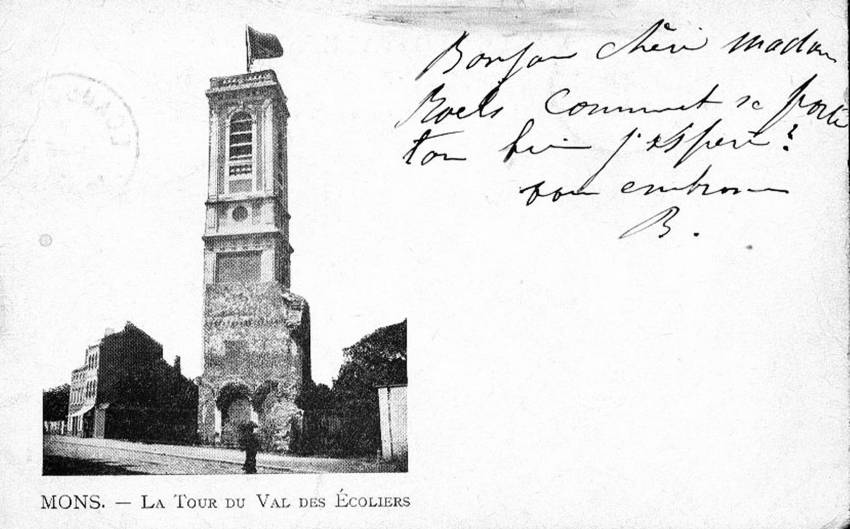 Bonjour chère madame
Roels comment se porte
ton bien j'espère?
vous embrasse
B.
MONS. — LA TOUR DU VAL DES ÉCOLIERS